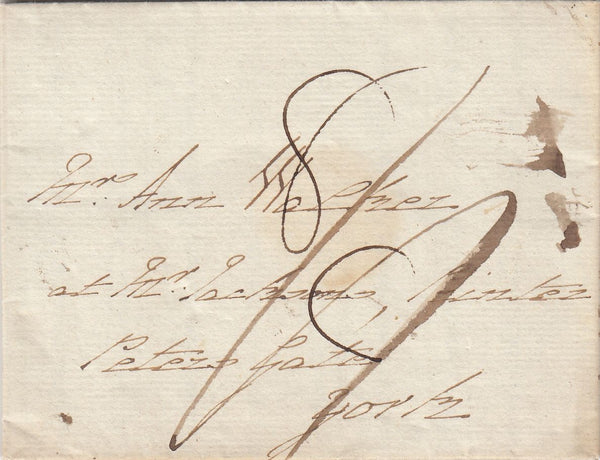 Mrs. Ann
at Mr. Jacksons, Printer
Peter Gate
York